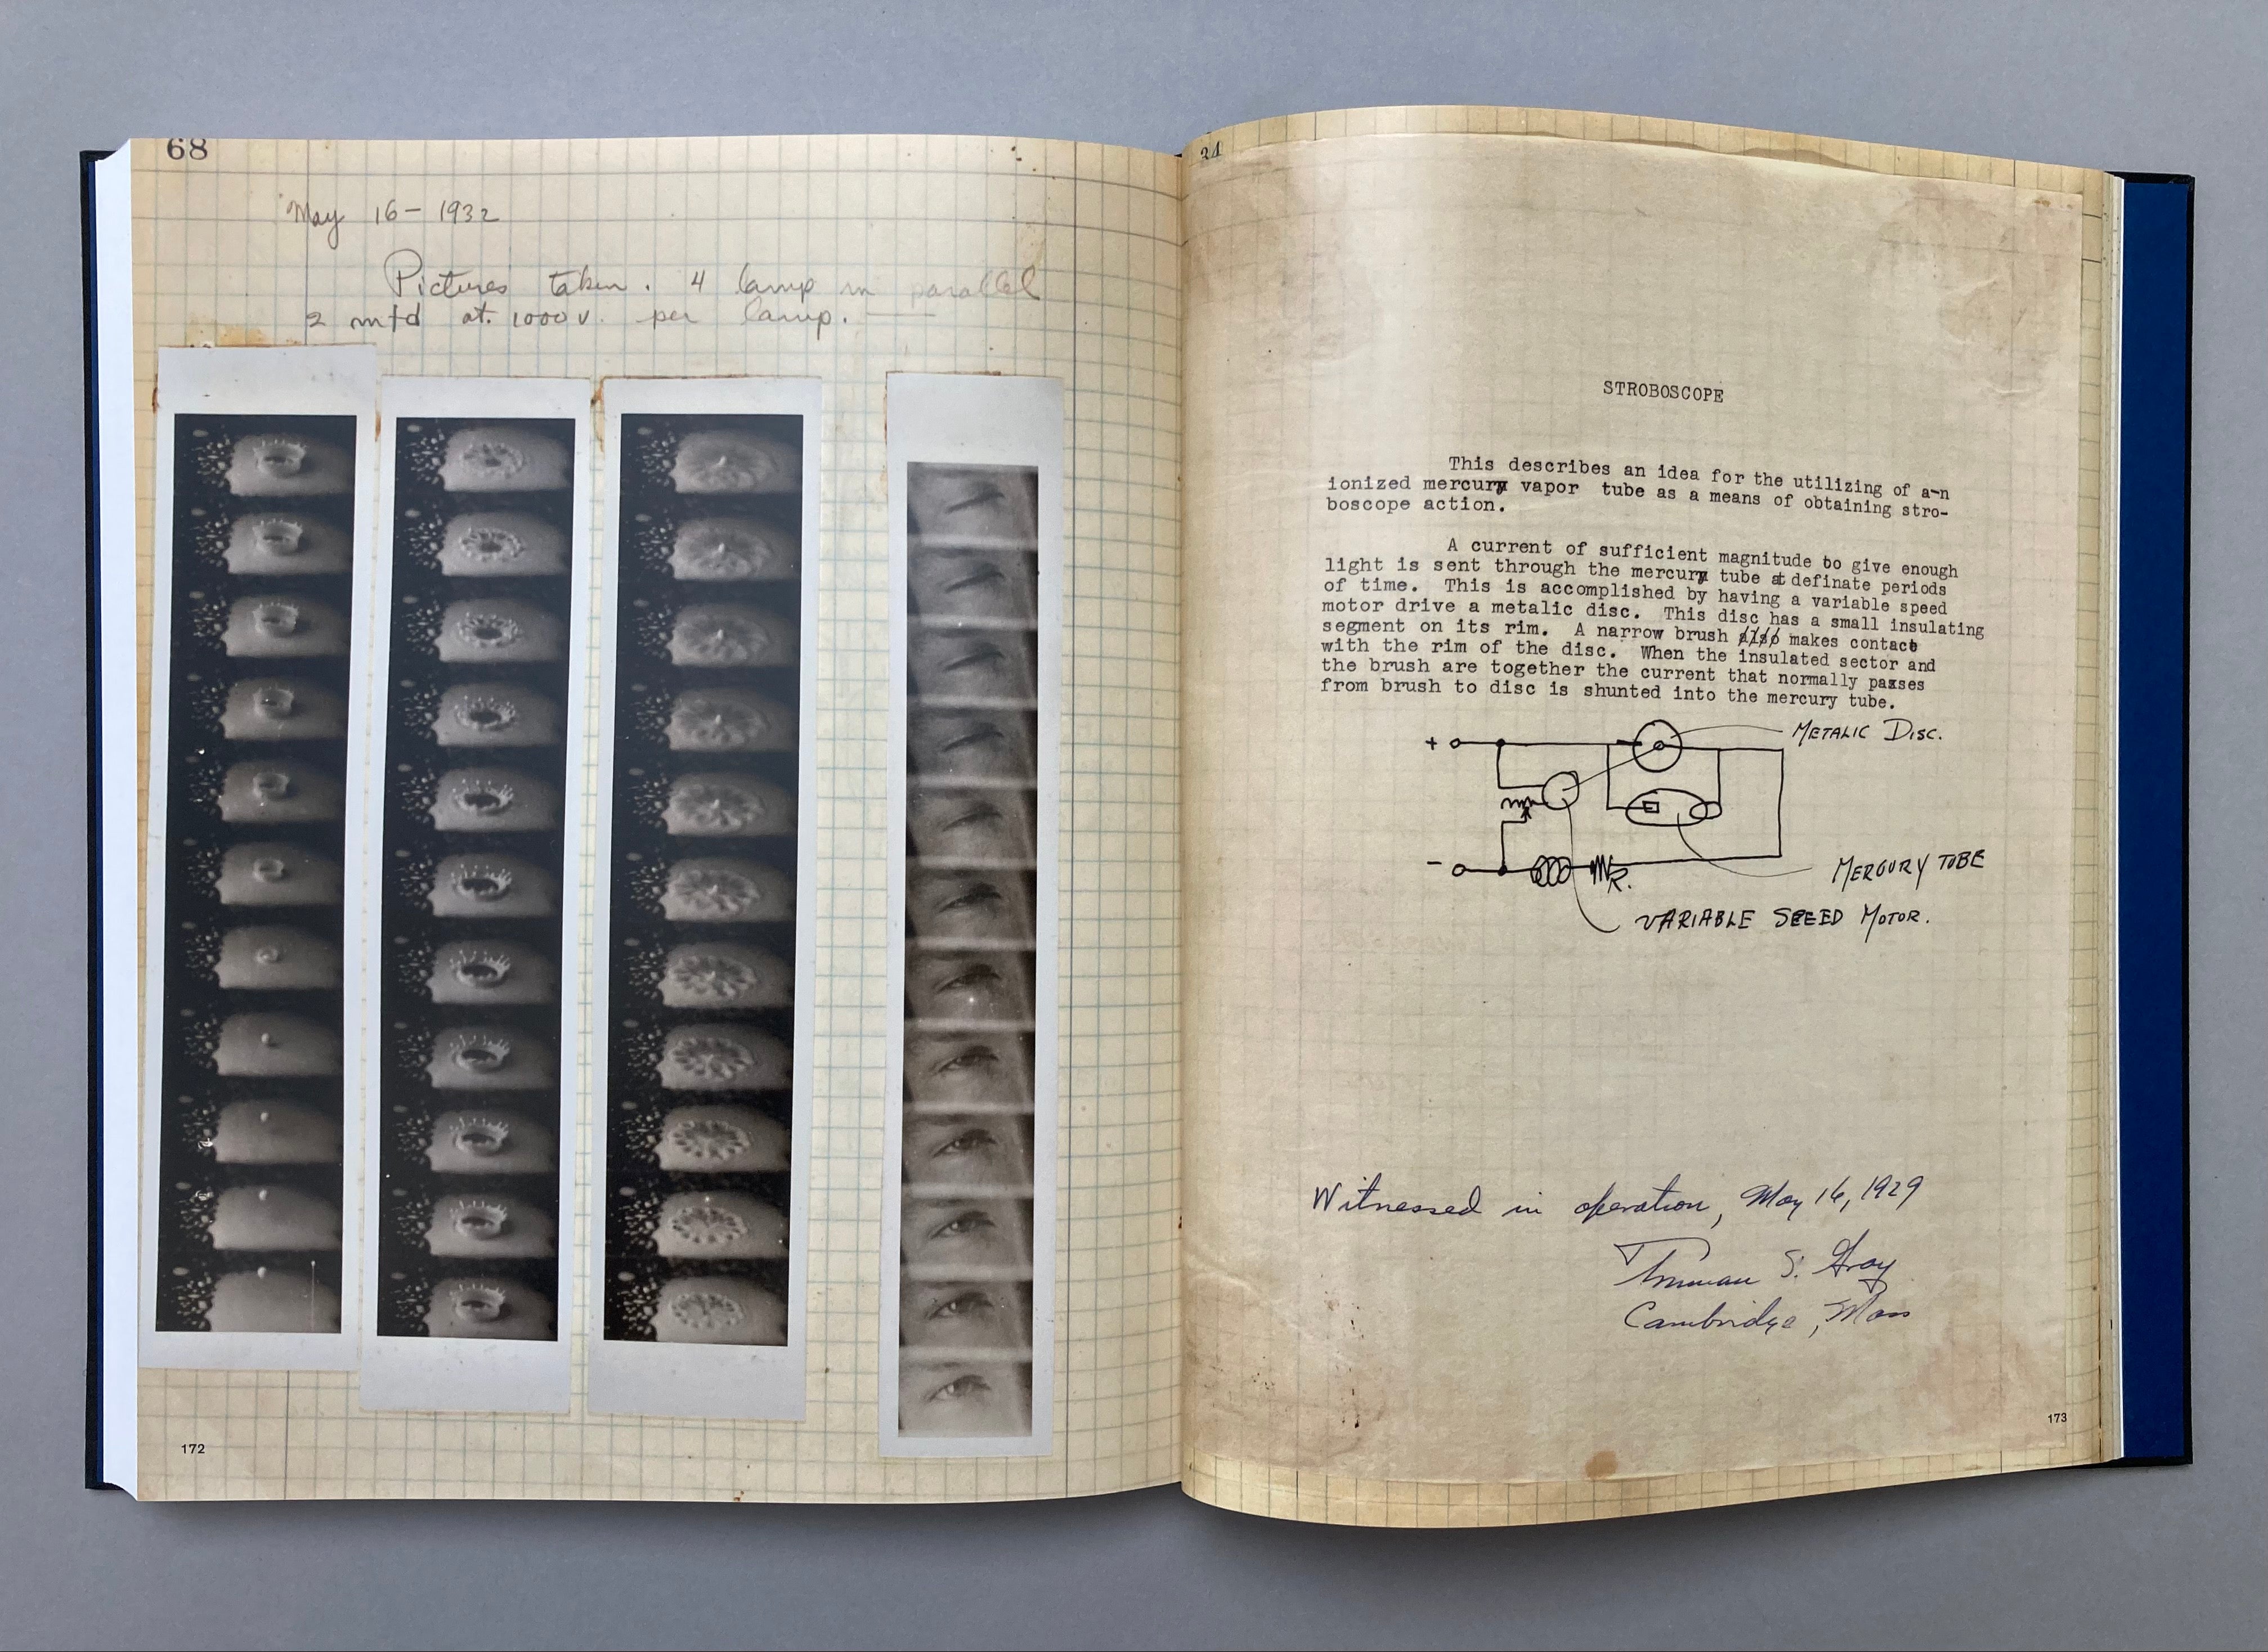 68
May 16 - 1932
Pictures taken. 4 lamp in parallel
2 mfd at. 1000 v. per lamp.
172
34
STROBOSCOPE
This describes an idea for the utilizing of a-n
ionized mercury vapor tube as a means of obtaining stro-
boscope action.
A current of sufficient magnitude to give enough
light is sent through the mercury tube at definate periods
of time. This is accomplished by having a variable speed
motor drive a metalic disc. This disc has a small insulating
segment on its rim. A narrow brush also makes contact
with the rim of the disc. When the insulated sector and
the brush are together the current that normally passes
from brush to disc is shunted into the mercury tube.
+
METALIC DISC.
-
R.
MERCURY TUBE
VARIABLE SPEED MOTOR.
Witnessed in operation, May 16, 1929
Truman S. Gray
Cambridge, Mass
173